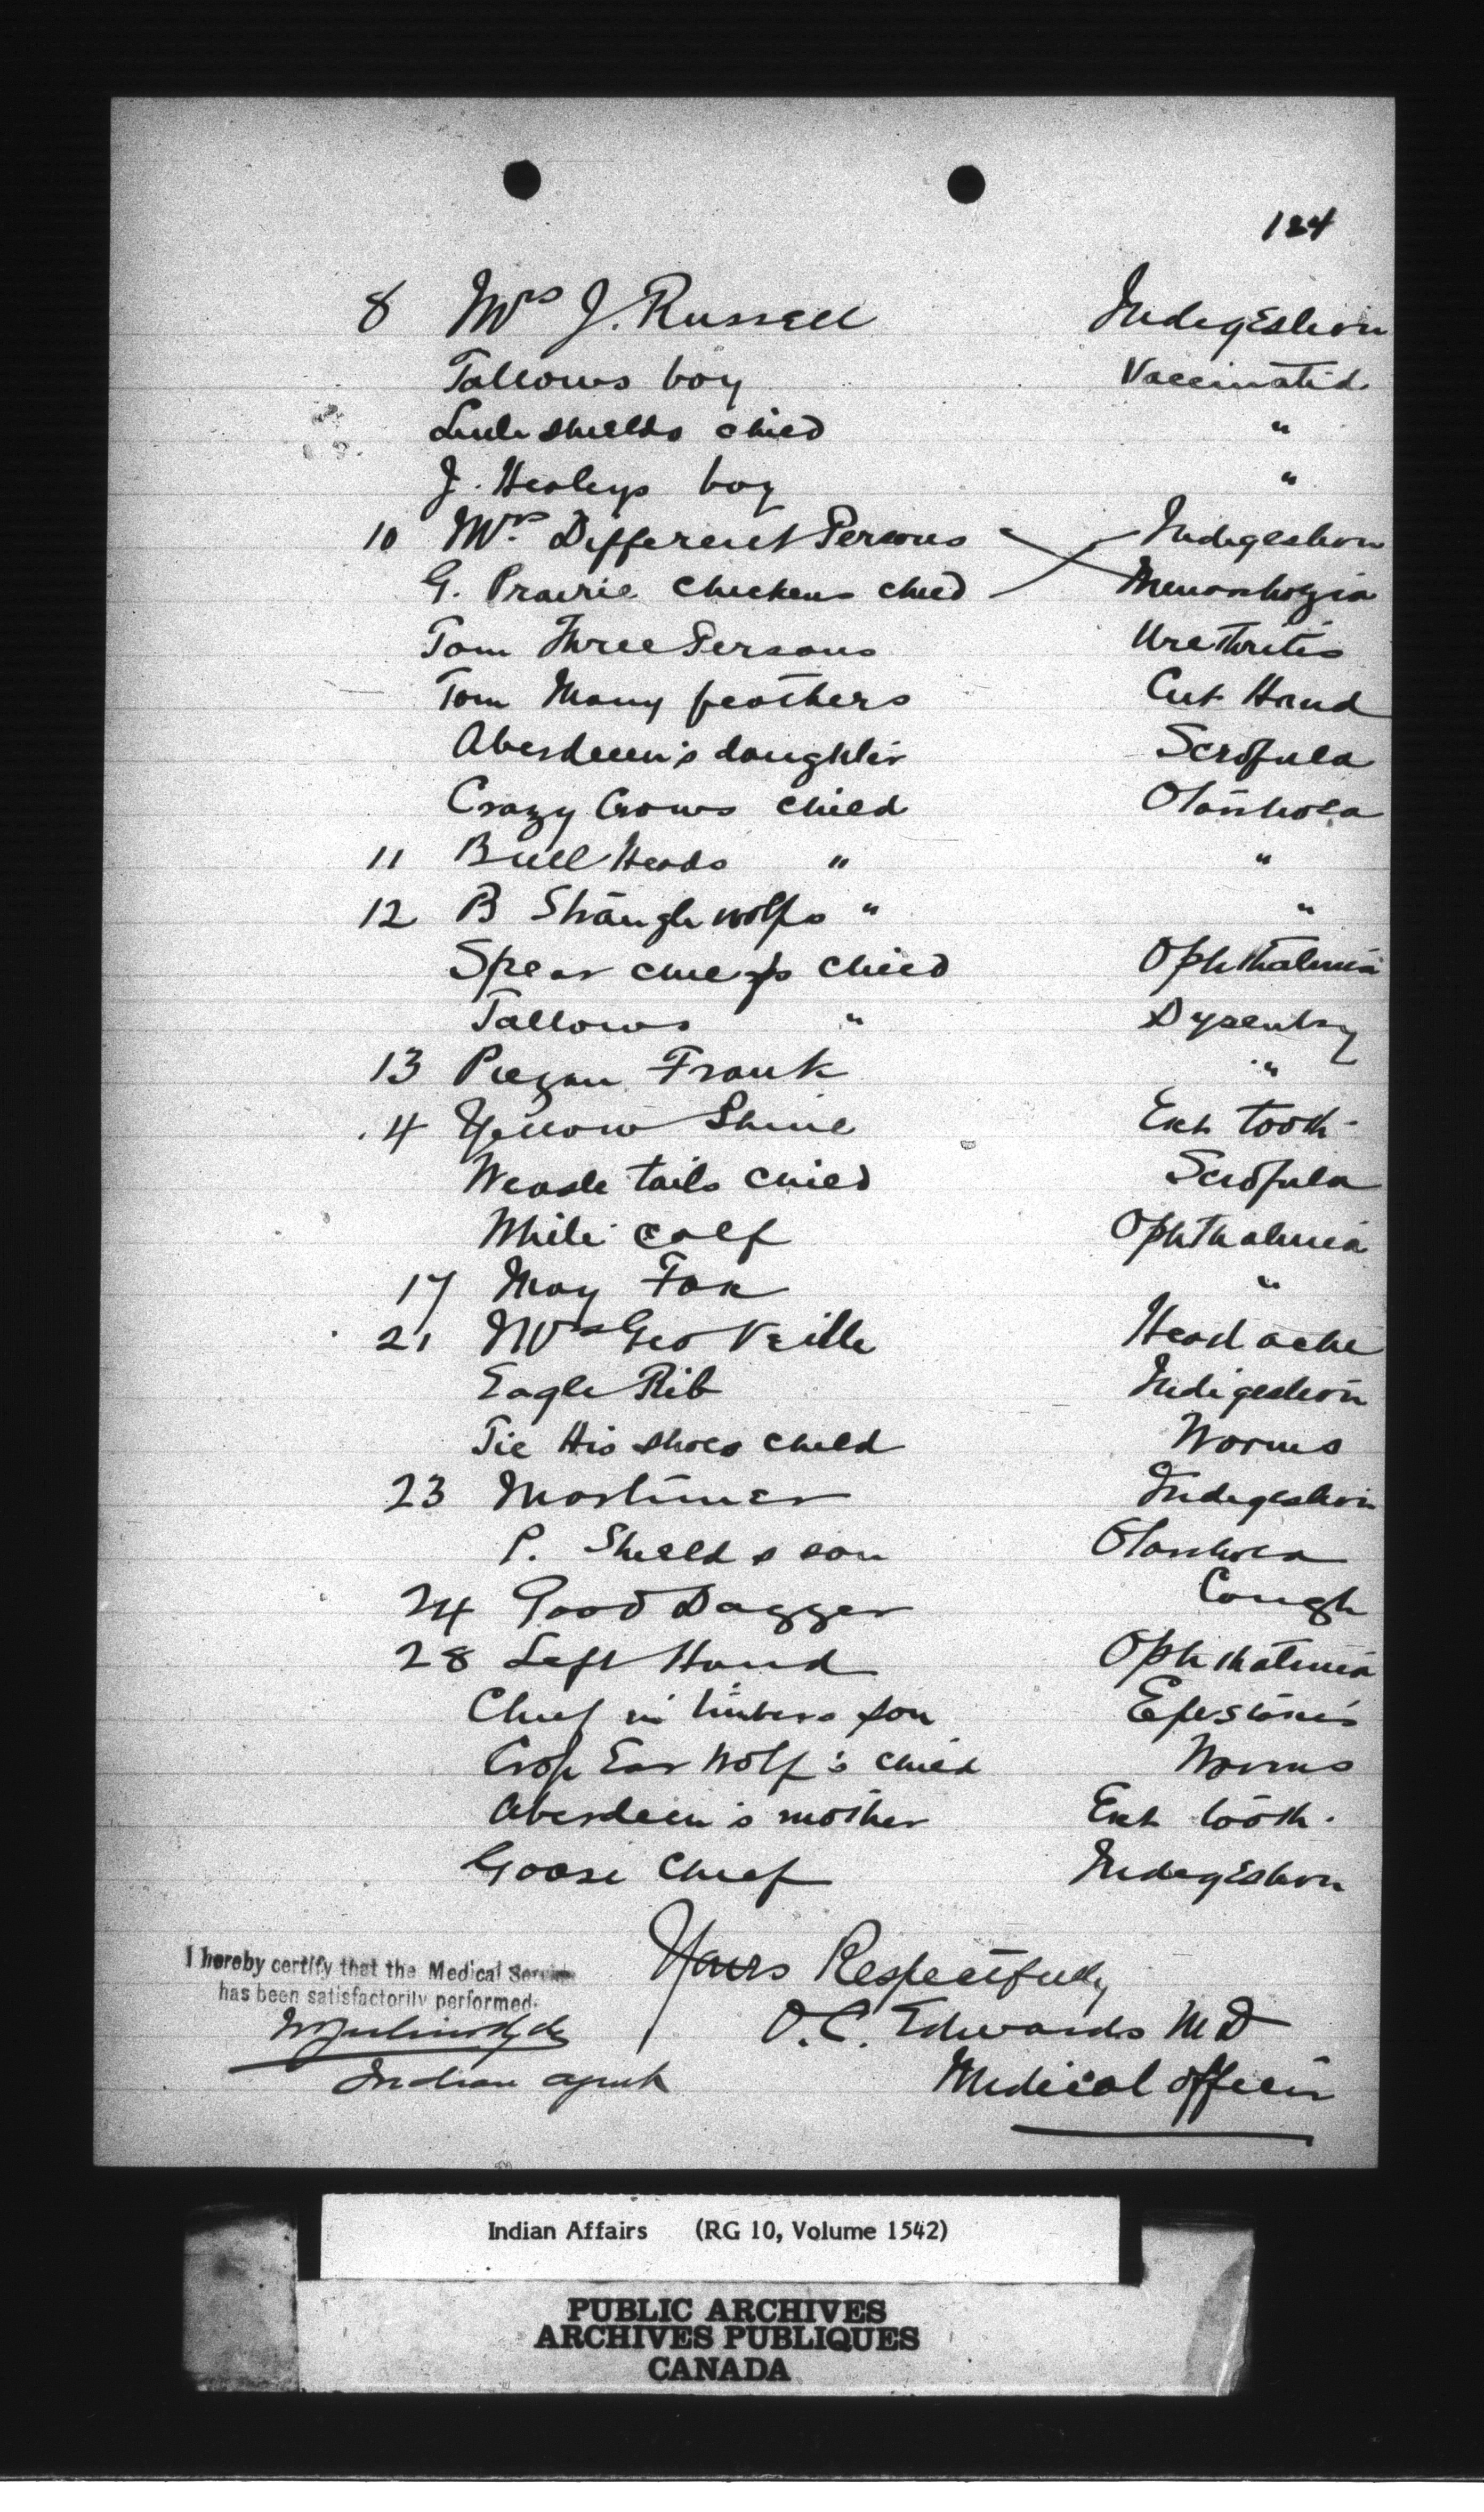 124
8 Mrs J. Russell Indigestion
Tallows boy Vaccinated
Little Shields child "
J. Healys boy "
10 Mrs Different Persons Indigestion
G. Prairie Chickens child Menorrhagia
Tom Three Persons Urethritis
Tom Many feathers Cut Hand
Aberdeen's daughter Scrofula
Crazy Crows child Otorrhoea
11 Bull Heads " "
12 B Strangle wolfs " "
Spear chiefs child Ophthalmia
Tallows " Dysentry
13 Piegan Frank "
14 Yellow Shine Ext tooth
Weasle tails child Scrofula
White calf Ophthalmia
17 May Fox "
21 Mrs Geo Veille Head ache
Eagle Rib Indigestion
Tie His shoes child Worms
23 Mortimer Indigestion
P. Shields son Otorrhoea
24 Good Dagger Cough
28 Left Hand Ophthalmia
Chief in timbers son Epistaxis
Crop Ear Wolf's child Worms
Aberdeen's mother Ext tooth.
Goose Chief Indigestion
Yours Respectfully
O.C. Edwards MD
Medical officer
I hereby certify that the Medical Service
has been satisfactorily performed.
Indian agent
Indian Affairs (RG 10, Volume 1542)
PUBLIC ARCHIVES
ARCHIVES PUBLIQUES
CANADA